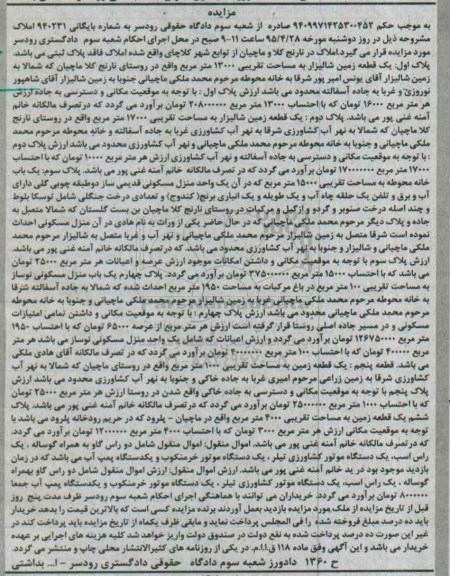 مزایده
به موجب حکم ۹۴۰۹۹۷۱۴۲۵۳۰۰۴۵۲ صادره از شعبه سوم دادگاه حقوقی رودسر به شماره بایگانی ۹۴۰۲۳۱ املاک
مشروحه ذیل در روز دوشنبه مورخه ۹۵/۴/۲۸ ساعت ۱۱-۹ صبح در محل اجرای احکام شعبه سوم دادگستری رودسر
مورد مزایده قرار می گیرد.املاک در نارنج کلا و ماچیان از توابع شهر کلاچای واقع شده املاک فاقد پلاک ثبتی می باشد.
پلاک اول: یک قطعه زمین شالیزار به مساحت تقریبی ۱۳۰۰۰ متر مربع واقع در روستای نارنج کلا ماچیان که شمالا به
زمین شالیزار آقای یونس امیر پور شرقا به خانه محوطه مرحوم محمد ملکی ماچیانی جنوبا به زمین شالیزار آقای شاهپور
نوروزی و غربا به جاده آسفالته محدود می باشد ارزش پلاک اول : با توجه به موقعیت مکانی و دسترسی به جاده ارزش
هر متر مربع ۱۶۰۰۰ تومان که با احتساب ۱۳۰۰۰ متر مربع ۲۰۸۰۰۰۰۰۰ تومان برآورد می گردد که درتصرف مالکانه خانم
آمنه غنی پور می باشد. پلاک دوم : یک قطعه زمین شالیزار به مساحت تقریبی ۱۷۰۰۰ متر مربع واقع در روستای نارنج
کلا ماچیان که شمالا به نهر آب کشاورزی شرقا به نهر آب کشاورزی غربا به جاده آسفالته و خانه محوطه مرحوم محمد
ملکی ماچیانی و جنوبا به خانه محوطه مرحوم محمد ملکی ماچیانی و نهر آب کشاورزی محدود می باشد ارزش پلاک دوم
: با توجه به موقعیت مکانی و دسترسی به جاده آسفالته و نهر آب کشاورزی ارزش هر متر مربع ۱۰۰۰۰ تومان که با احتساب
۱۷۰۰۰ متر مربع ۱۷۰۰۰۰۰۰۰ تومان برآورد می گردد که در تصرف مالکانه خانم آمنه غنی پور می باشد. پلاک سوم: یک باب
خانه محوطه به مساحت تقریبی ۱۵۰۰۰ متر مربع که در آن یک واحد منزل مسکونی قدیمی ساز دوطبقه چوبی گلی دارای
آب و برق و تلفن یک حلقه چاه آب و یک طویله و یک انباری برنج( کندوج) و تعدادی درخت جنگلی شامل توسکا بلوط
و چند اصله درخت صنوبر و گردو و ازگیل و مرکبات در روستای نارنج کلا ماچیان بن بست گلستان که شمالا متصل به
جاده و پلاک دیگر مرحوم محمد ملکی ماچیانی که در حال حاضر یکی از وراث به نام هادی در آن منزل مسکونی احداث
نموده است شرقا متصل به زمین شالیزار مرحوم محمد ملکی ماچیانی و نهر آب و غربا متصل به شالیزار مرحوم محمد
ملکی ماچیانی و شالیزار و جنوبا به نهر آب کشاورزی محدود می باشد. که درتصرف مالکانه خانم آمنه غنی پور می باشد.
ارزش پلاک سوم با توجه به موقعیت مکانی و داشتن امکانات موجود ارزش عرصه و اعیانات هر متر مربع ۲۵۰۰۰ تومان
می باشد که با احتساب ۱۵۰۰۰ متر مربع ۳۷۵۰۰۰۰۰۰ تومان برآورد می گردد. پلاک چهارم یک باب منزل مسکونی نوساز
به مساحت تقریبی ۱۰۰ متر مربع در باغ مرکبات به مساحت ۱۹۵۰ متر مربع احداث شده که شمالا به جاده آسفالته شرقا
به خانه محوطه مرحوم محمد ملکی ماچیانی غربا به زمین شالیزار مرحوم محمد ملکی ماچیانی و جنوبا به خانه محوطه
مرحوم محمد ملکی ماچیانی محدود می باشد ارزش پلاک چهارم : با توجه به موقعیت مکانی و داشتن تمامی امتیازات
مسکونی و در مسیر جاده اصلی روستا قرار گرفته است ارزش هر متر مربع از عرصه ۶۵۰۰۰ تومان که با احتساب ۱۹۵۰
متر مربع ۱۲۶۷۵۰۰۰۰ تومان برآورد می گردد و ارزش اعیانات که شامل یک واحد منزل مسکونی نوساز می باشد هر متر
مربع ۴۰۰۰۰۰ تومان که با احتساب ۱۰۰ متر مربع ۴۰۰۰۰۰۰۰ تومان برآورد می گردد که در تصرف مالکانه آقای هادی ملکی
می باشد. قطعه پنجم : یک قطعه زمین به مساحت تقریبی ۱۰۰۰ متر مربع واقع در روستای ماچیان که شمالا به نهر آب
کشاورزی شرقا به زمین زراعی مرحوم امیری غربا به جاده خاکی و جنوبا به نهر آب کشاورزی محدود می باشد ارزش
پلاک پنجم با توجه به موقعیت مکانی و دسترسی به جاده خاکی واقع شدن در روستا ارزش هر متر مربع ۲۵۰۰۰ تومان
که با احتساب ۱۰۰۰ متر مربع ۲۵۰۰۰۰۰۰ تومان برآورد می گردد که درتصرف مالکانه خانم آمنه غنی پور می باشد. پلاک
ششم یک قطعه زمین به مساحت تقریبی ۴۰۰۰ متر مربع واقع در ماچیان - پلرود که در حریم رودخانه پلرود می باشد با
توجه به موقعیت مکانی ارزش هر متر مربع ۳۰۰۰ تومان که با احتساب ۴۰۰۰ متر مربع ۱۲۰۰۰۰۰۰ تومان برآورد می گردد.
که در تصرف مالکانه خانم آمنه غنی پور می باشد. اموال منقول: اموال منقول شامل دو راس گاو به همراه گوساله ، یک
راس اسب، یک دستگاه موتور کشاورزی تیلر ، یک دستگاه موتور خرمنکوب و یکدستگاه پمپ آب می باشد که در زمان
بازدید موجود بود در ید خانم آمنه غنی پور می باشد. ارزش اموال منقول: ارزش اموال منقول شامل دو راس گاو بهمراه
گوساله ، یک راس اسب، یک دستگاه موتور کشاورزی تیلر ، یک دستگاه موتور خرمنکوب و یکدستگاه پمپ آب جمعا
۸۰۰۰۰۰۰ تومان برآورد می گردد. خریداران می توانند با هماهنگی اجرای احکام شعبه سوم رودسر ظرف مدت پنج روز
قبل از تاریخ مزایده از ملک مورد مزایده بازدید بعمل آوردند برنده مزایده کسی است که بالاترین قیمت را بدهد خریدار
باید ده درصد مبلغ فروخته شده را فی المجلس پرداخت نماید و مابقی ظرف یکماه از تاریخ مزایده باید پرداخت کند در
غیر این صورت ده درصد پرداخت شده به نفع دولت در صندوق دولت واریز خواهد شد کلیه هزینه های اجرایی بر عهده
خریدار می باشد و این آگهی وفق ماده ۱۱۸ ق.ا.ا.م. در یکی از روزنامه های کثیرالانتشار محلی چاپ و منتشر می گردد.
ح ۱۳۶۰ دادورز شعبه سوم دادگاه حقوقی دادگستری رودسر - ا... بداشتی